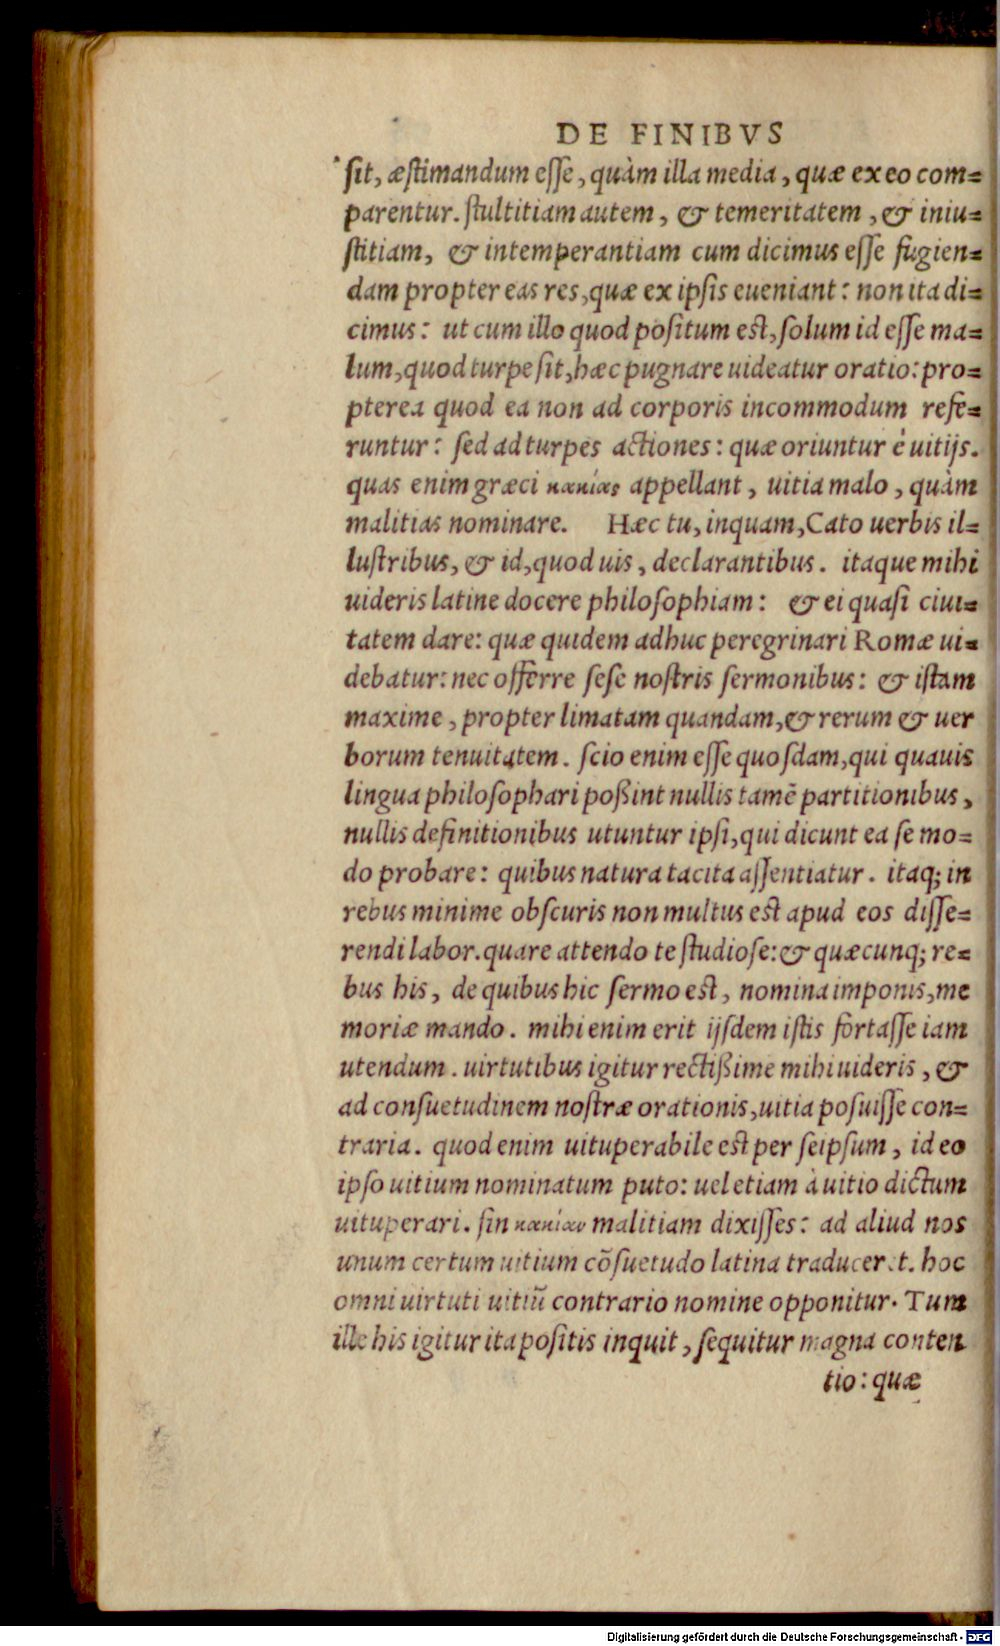 DE FINIBVS
sit, æstimandum esse, quàm illa media, quæ ex eo com=
parentur. stultitiam autem, & temeritatem, & iniu=
stitiam, & intemperantiam cum dicimus esse fugien=
dam propter eas res, quæ ex ipsis eueniant: non ita di=
cimus: ut cum illo quod positum est, solum id esse ma=
lum, quod turpe sit, hæc pugnare uideatur oratio: pro=
pterea quod ea non ad corporis incommodum refe=
runtur: sed ad turpes actiones: quæ oriuntur è uitijs.
quas enim græci κακίας appellant, uitia malo, quàm
malitias nominare. Hæc tu, inquam, Cato uerbis il=
lustribus, & id, quod uis, declarantibus. itaque mihi
uideris latine docere philosophiam: & ei quasi ciui=
tatem dare: quæ quidem adhuc peregrinari Romæ ui=
debatur: nec offerre sese nostris sermonibus: & istam
maxime, propter limatam quandam, & rerum & uer
borum tenuitatem. scio enim esse quosdam, qui quauis
lingua philosophari poßint nullis tamẽ partitionibus,
nullis definitionibus utuntur ipsi, qui dicunt ea se mo=
do probare: quibus natura tacita assentiatur. itaq; in
rebus minime obscuris non multus est apud eos disse=
rendi labor. quare attendo te studiose: & quæcunq; re=
bus his, de quibus hic sermo est, nomina imponis, me
moriæ mando. mihi enim erit ijsdem istis fortasse iam
utendum. uirtutibus igitur rectißime mihi uideris, &
ad consuetudinem nostræ orationis, uitia posuisse con=
traria. quod enim uituperabile est per seipsum, id eo
ipso uitium nominatum puto: uel etiam à uitio dictum
uituperari. sin κακίαν malitiam dixisses: ad aliud nos
unum certum uitium cõsuetudo latina traduceret. hoc
omni uirtuti uitiũ contrario nomine opponitur. Tum
ille his igitur ita positis inquit, sequitur magna conten
tio: quæ
Digitalisierung gefördert durch die Deutsche Forschungsgemeinschaft - DFG